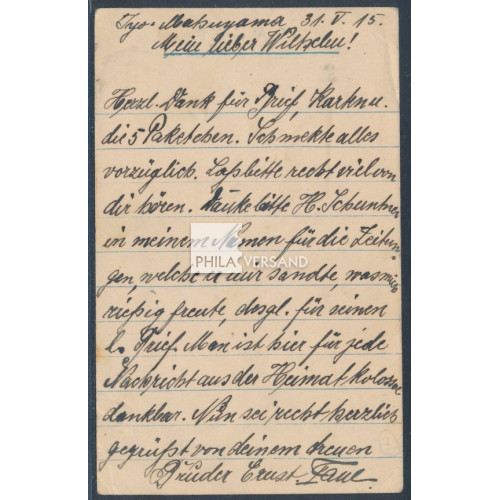 Iyo-Matsuyama 31. V. 15.
Mein lieber Wilhelm!
Herzl. Dank für Brief, Karten u.
die 5 Paketchen. Schmekte alles
vorzüglich. Laß bitte recht viel von
dir hören. Danke bitte H.
in meinem Namen für die Zeitun-
gen, welche er mir sandte, was mich
rießig freute, desgl. für seinen
l. Brief. Man ist hier für jede
Nachricht aus der Heimat kolossal
dankbar. Nun sei recht herzlich
gegrüßt von deinem treuen
Bruder Ernst Paul.
PHILA VERSAND